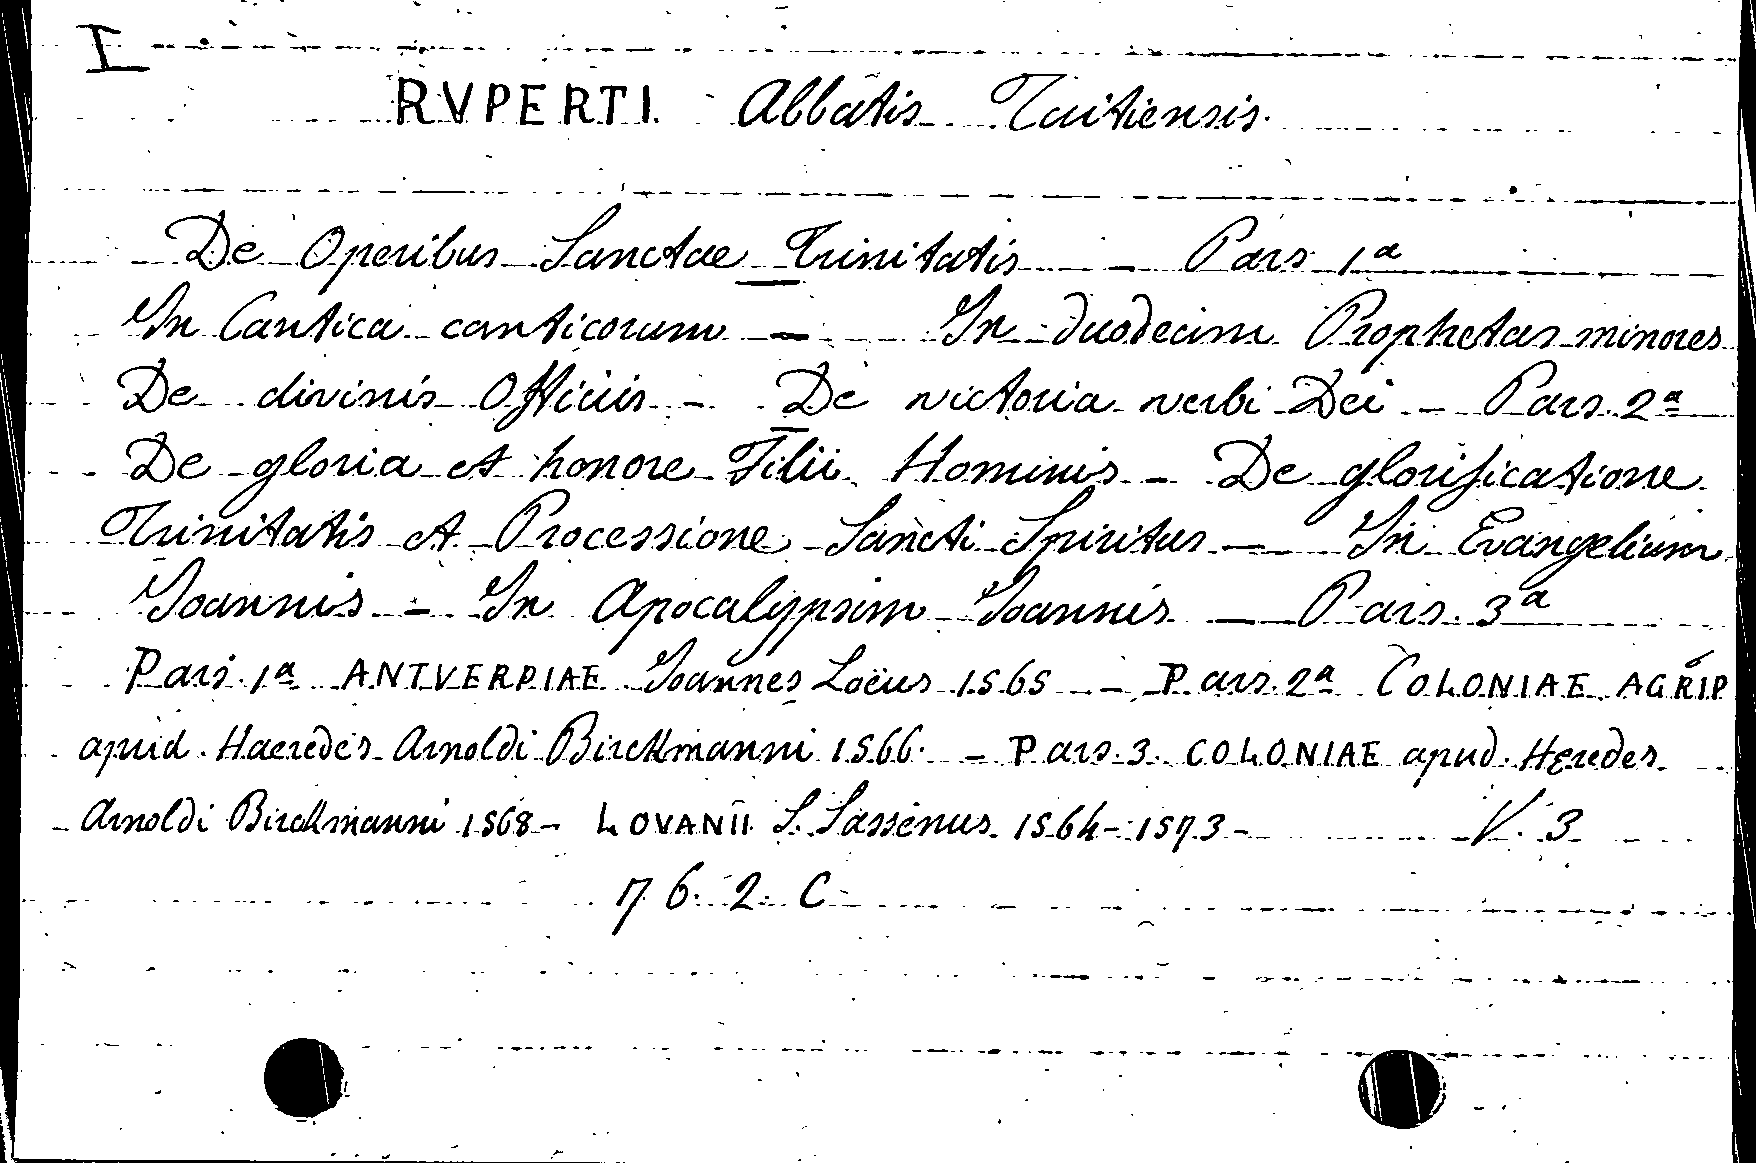 I
RVPERTI Abbatis Tuitiensis.
De Operibus Sanctae Trinitatis - Pars 1ª
In Cantica canticorum - In duodecim Prophetas minores
De divinis Officiis - De victoria verbi Dei - Pars. 2ª
De gloria et honore Filii Hominis - De glorificatione
Trinitatis et Processione Sancti Spiritus - In Evangelium
Joannis - In Apocalypsim Joannis - Pars. 3ª
Pars. 1ª ANTVERPIAE Joannes Loëus 1565 - Pars. 2ª COLONIAE AGRIP
apud. Haeredes Arnoldi Birckmanni 1566. - Pars. 3. COLONIAE apud. Heredes
Arnoldi Birckmanni 1568 - LOVANII S. Sassenus. 1564 - 1573 - V. 3
76. 2. C